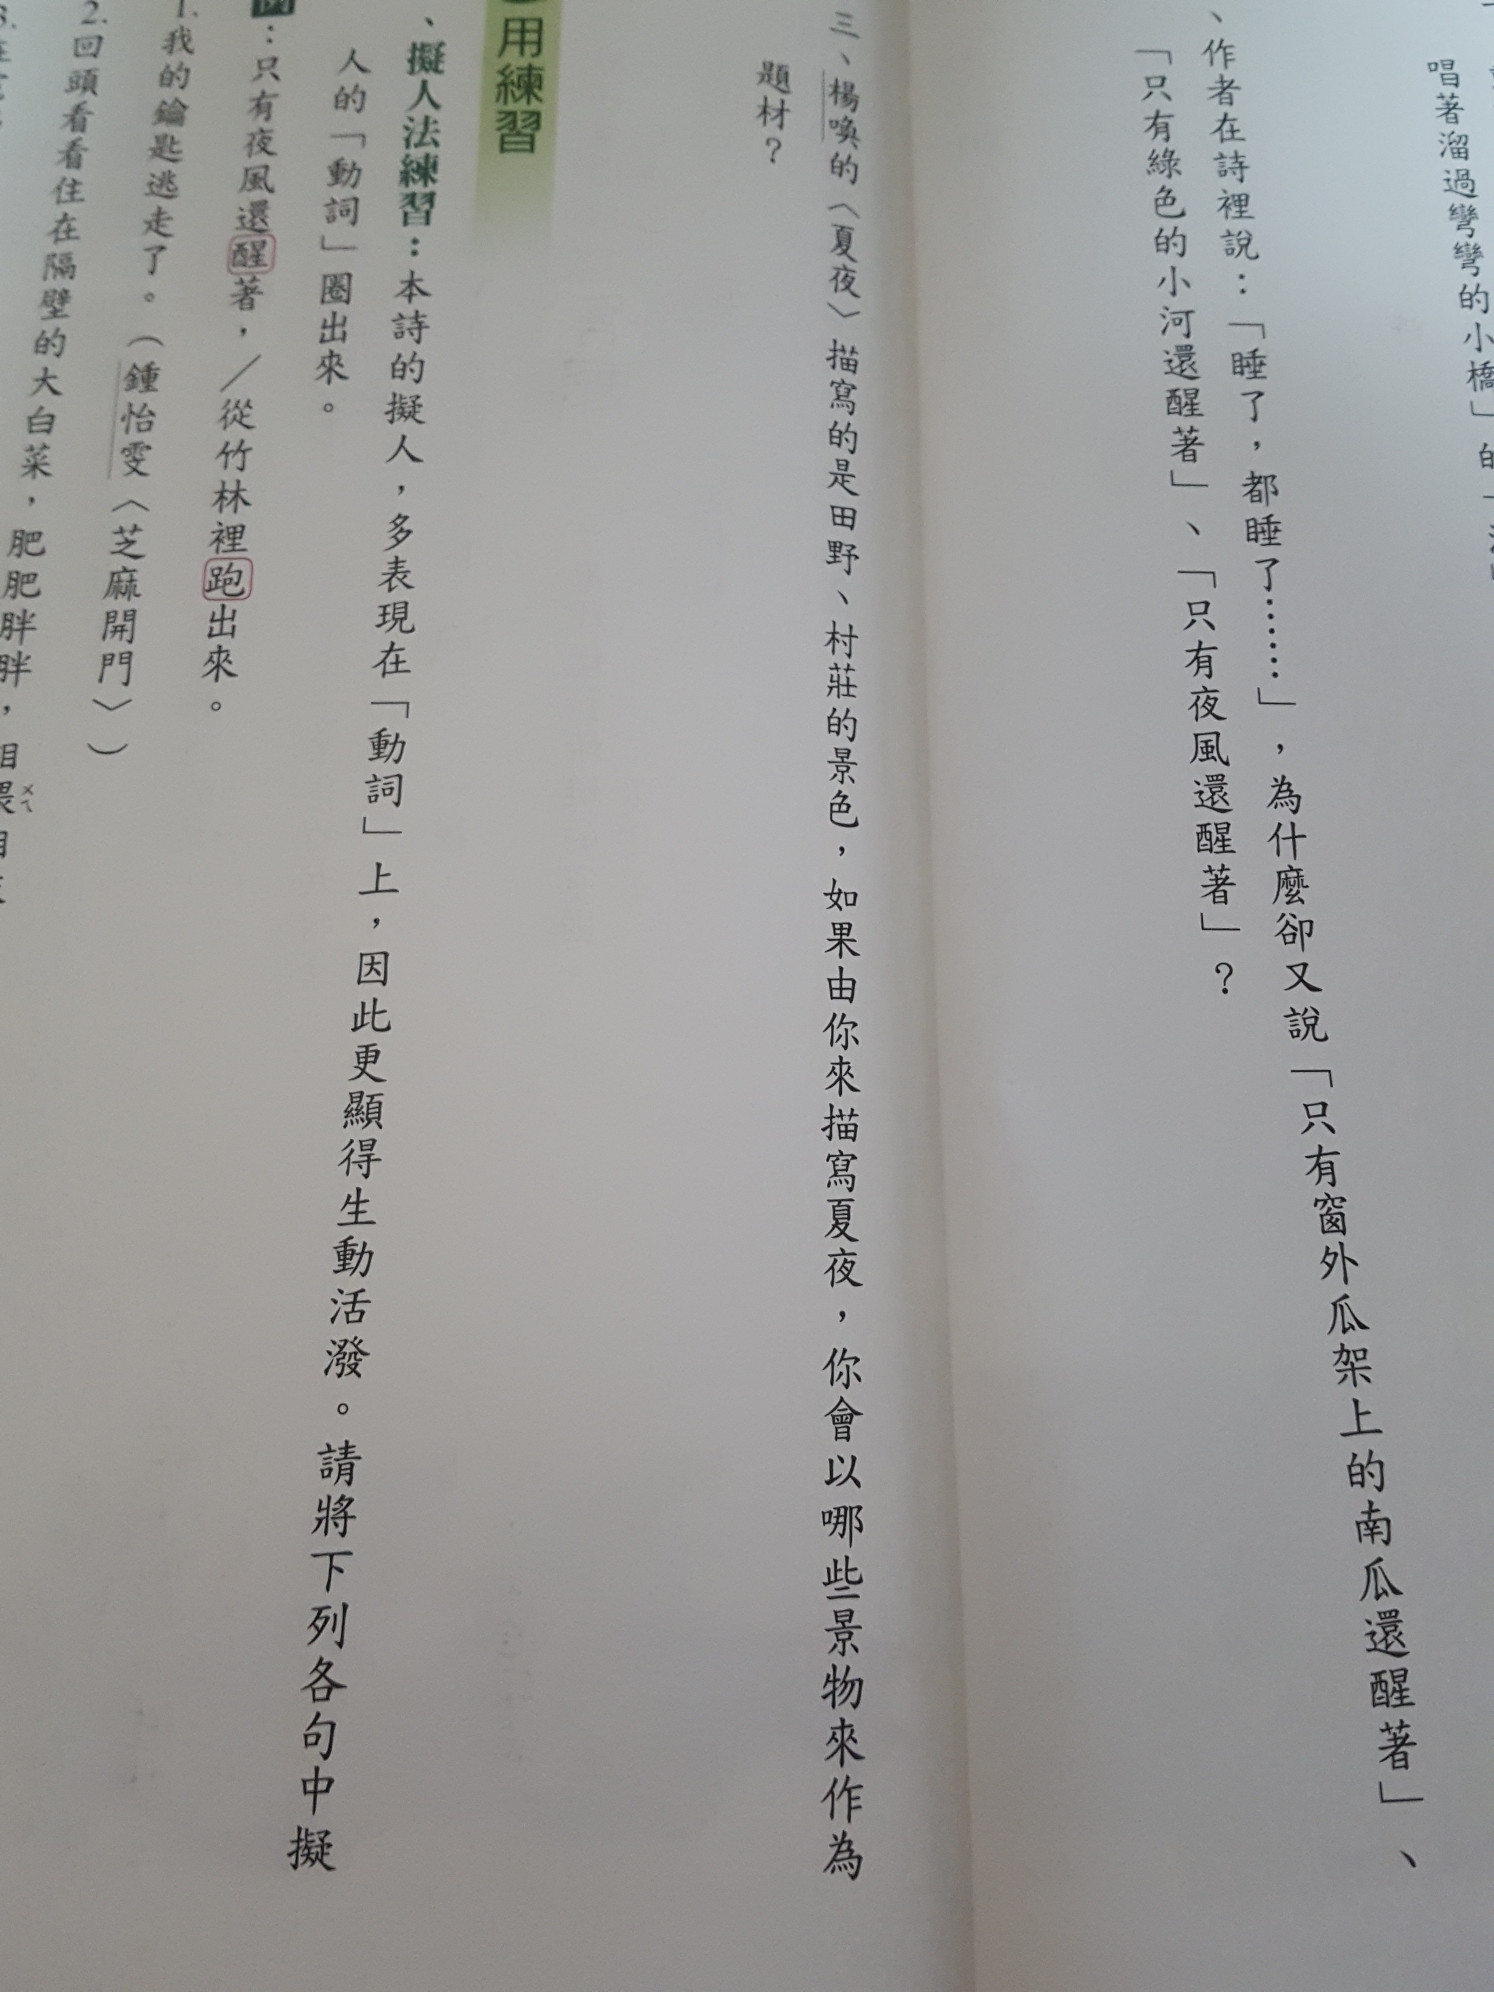 唱著溜過彎彎的小橋」的「
、作者在詩裡說：「睡了，都睡了……」，為什麼卻又說「只有窗外瓜架上的南瓜還醒著」、
「只有綠色的小河還醒著」、「只有夜風還醒著」？
三、楊喚的〈夏夜〉描寫的是田野、村莊的景色，如果由你來描寫夏夜，你會以哪些景物來作為
題材？
用練習
、擬人法練習：本詩的擬人，多表現在「動詞」上，因此更顯得生動活潑。請將下列各句中擬
人的「動詞」圈出來。
：只有夜風還醒著，／從竹林裡跑出來。
1.我的鑰匙逃走了。（鍾怡雯〈芝麻開門〉）
2.回頭看看住在隔壁的大白菜，肥肥胖胖，相偎ㄨㄟ相